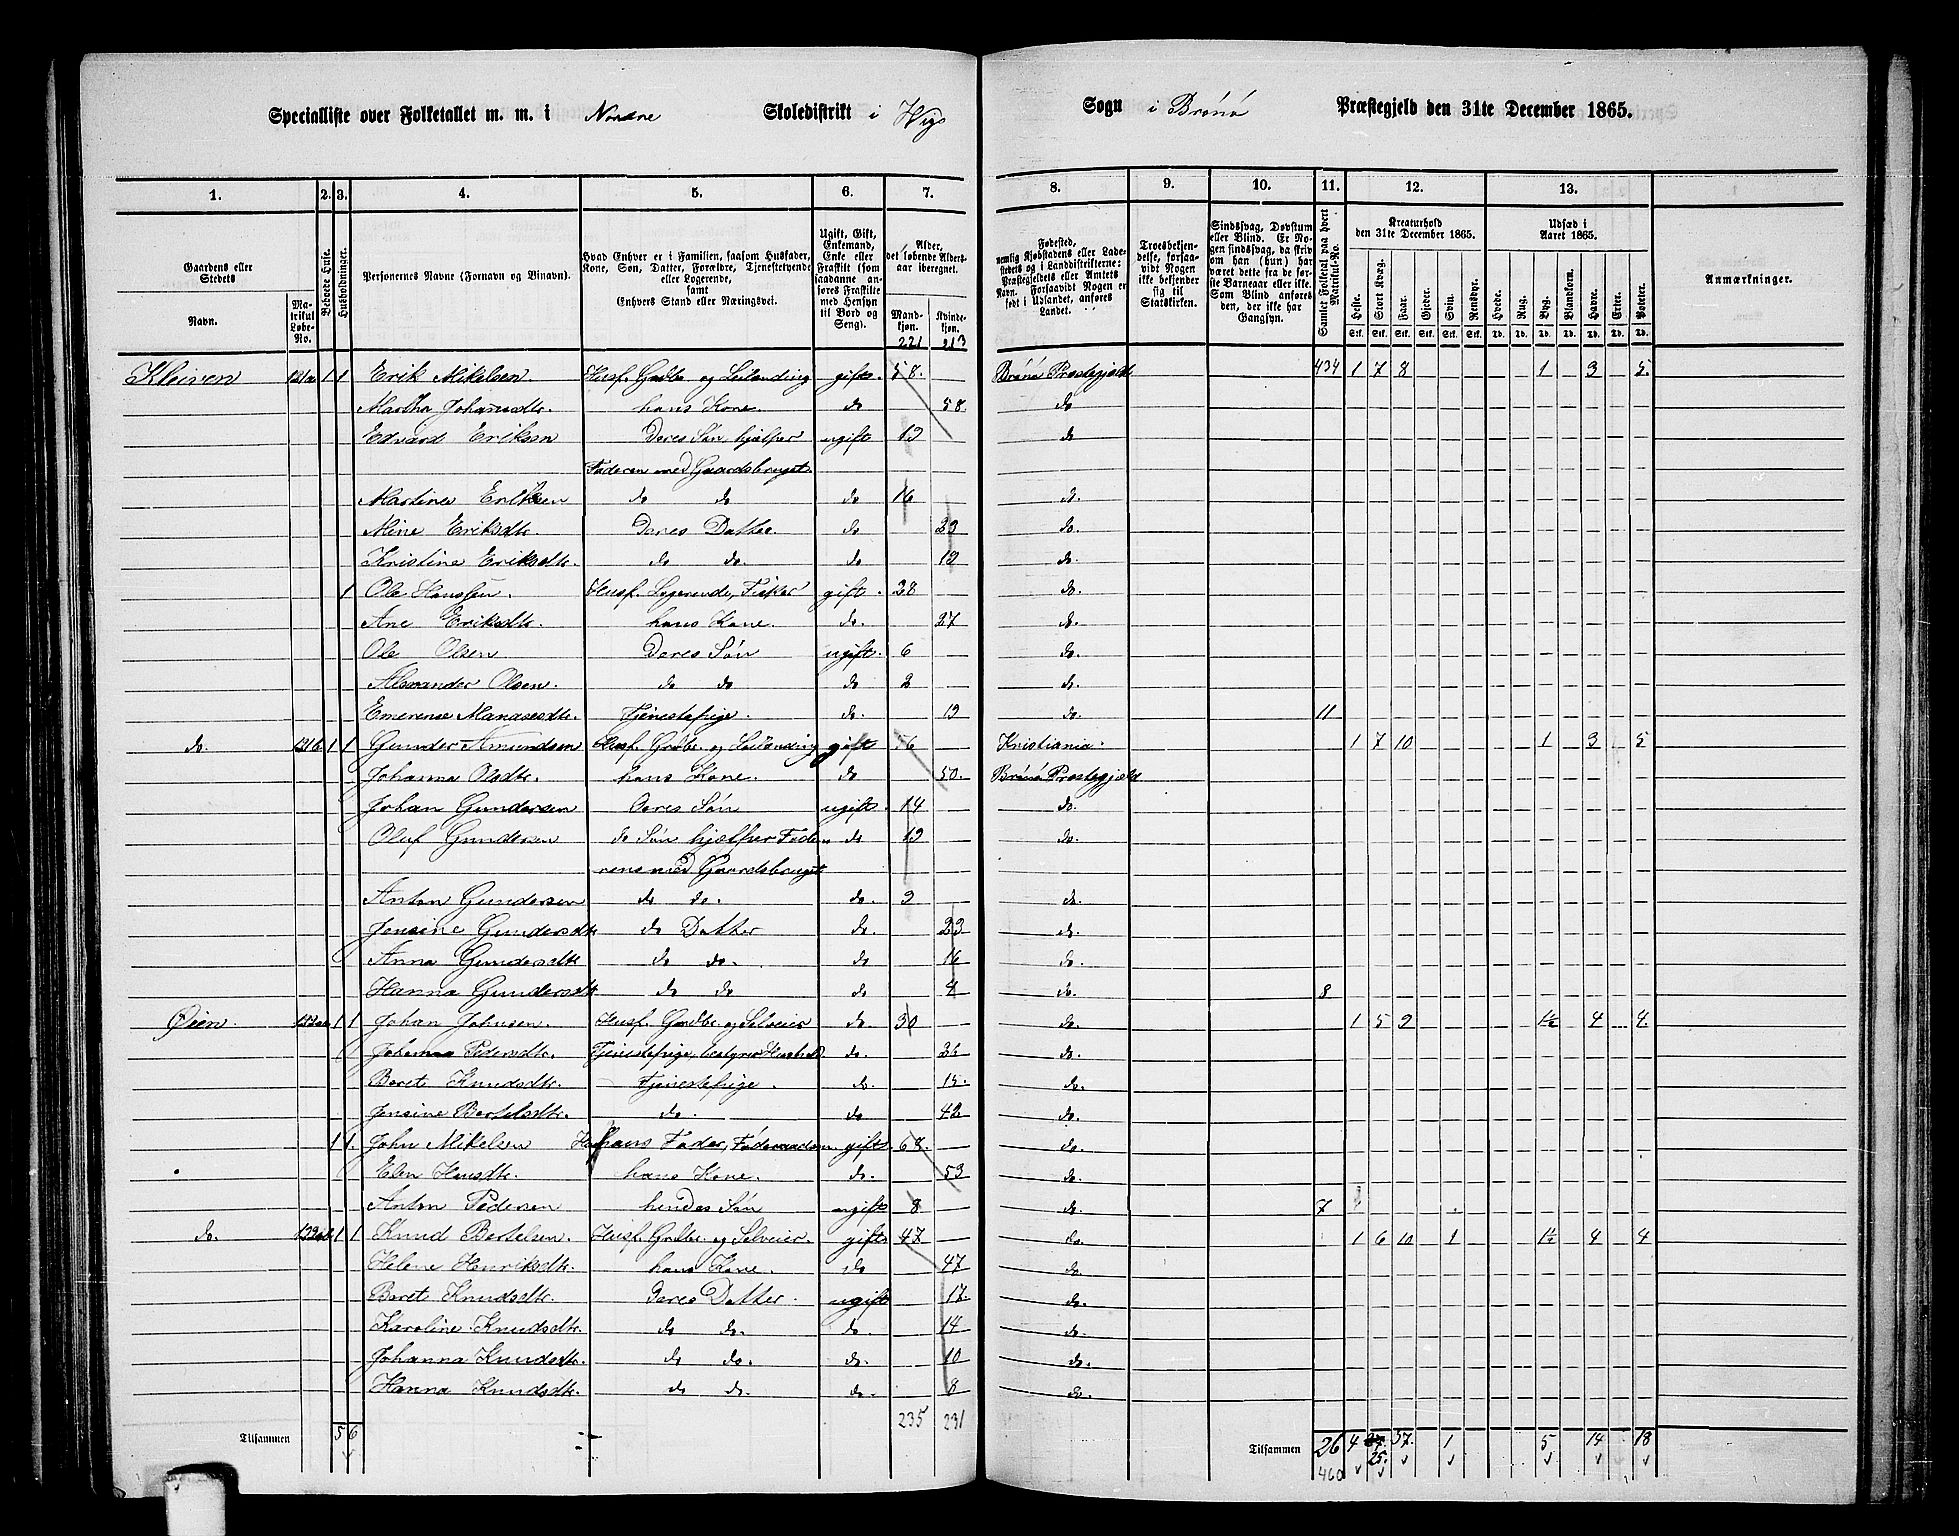 Specialliste over Folketallet m. m. i Nordre Skoledistrikt i Vigs Sogn i Brönö Præstegjeld den 31te December 1865.
1. 2. 3. 4. 5. 6. 7. 8. 9. 10. 11. 12. 13.
Gaardens eller Stedets Navn.
Matrikul Løbe-No.
Beboede Huse.
Husholdninger.
Personernes Navne (Fornavn og Binavn).
Hvad Enhver er i Familien, saasom Husfader, Kone, Søn, Datter, Forældre, Tjenestetyende eller Logerende, samt Enhvers Stand eller Næringsvei.
Ugift, Gift, Enkemand, Enke eller Fraskilt (som saadanne anføres Fraskilte med Hensyn til Bord og Seng).
Alder, det løbende Aldersaar iberegnet.
Mandkjøn. Kvindekjøn.
221 213
Fødested, nemlig Kjøbstadens eller Ladestedets og i Landdistrikterne: Præstegjeldets eller Amtets Navn. Forsaavidt Nogen er født i Udlandet, anføres Landet.
Troesbekjendelse, forsaavidt Nogen ikke bekjender sig til Statskirken.
Sindssvag, Døvstum eller Blind. Er Nogen sindssvag, da skrives om han (hun) har været dette fra de første Barneaar eller ikke. Som Blind anføres den, der ikke har Gangsyn.
Samlet Folketal paa hvert Matrikul-No.
Kreaturhold den 31te December 1865.
Heste. Stort Kvæg. Faar. Gjeder. Svin. Rensdyr.
Udsæd i Aaret 1865.
Hvede. Rug. Byg. Blandkorn. Havre. Erter. Poteter.
Anmærkninger.
Kleiven 131a 1 1 Erik Mikelsen. Husf. Grdbr. og Leilænding gift. 58. Brönö Prestegjeld 434 1 7 8 1 3 5.
Martha Johansdtr. hans Kone. do 58. do
Edvard Eriksen Deres Søn hjælper ugift 19 do
Faderen med Gaardsbruget.
Martines Eriksen do do do 16 do.
Mine Eriksdtr. Deres Datter. do 23 do.
Kristine Eriksdtr. do do. do 19 do.
1 Ole Hansen. Husf. Logerende, Fisker gift. 28 do.
Ane Eriksdtr. hans Kone. do. 27 do.
Ole Olsen Deres Søn ugift. 6 do.
Alexander Olsen. do do do 2 do.
Emerense Manassesdtr. Tjenestepige. do. 19 do. 11
do. 131b 1 1 Gunder Amundsen Husf. Grdbr. og Leilænding gift 56 Kristiania. 1 7 10 1 3 5
Johanna Olsdtr. hans Kone. do 50. Brönö Prestegjeld
Johan Gundersen Deres Søn ugift. 14 do.
Oluf Gundersen do Søn hjælper Fade do 19 do.
rens med Gaardsbruget
Anton Gundersen do do. do. 9 do.
Jensine Gundersdtr do Datter do. 23 do.
Anna Gundersdtr do do. do 16 do.
Hanna Gundersdtr do do do 4 do. 8
Øien. 1 1 Johan Johnsen. Husf. Grdbr. og Selveier do. 30 do. 1 5 9 1½ 4 4.
Johanna Pedersdtr. Tjenestepige, bestyrer Hushold. do. do.
Beret Knudsdtr. Tjenestepige. do. 15. do.
Jensine Bertelsdtr. do. do 42 do.
1 1. John Mikelsen Husf hans Fader, Föderaadsm. gift. 68. do.
Elen Hansdtr. hans Kone. do. 53 do.
Anton Pedersen hendes Søn ugift 8 do. 7
do. 1 1 Knud Bertelsen. Husf. Grdbr. og Selveier. gift 47 do 1 6 10 1 1½ 4 4
Helene Henriksdtr. hans Kone. do 47 do.
Beret Knudsdtr. Deres Datter. ugift 17. do.
Karoline Knudsdtr. do do. do. 14 do.
Johanna Knudsdtr. do do. do. 10 do.
Hanna Knudsdtr. do do. do. 8 do.
235 231
Tilsammen 5 6 Tilsammen 26 4 25. 37. 1 5 14 18
460